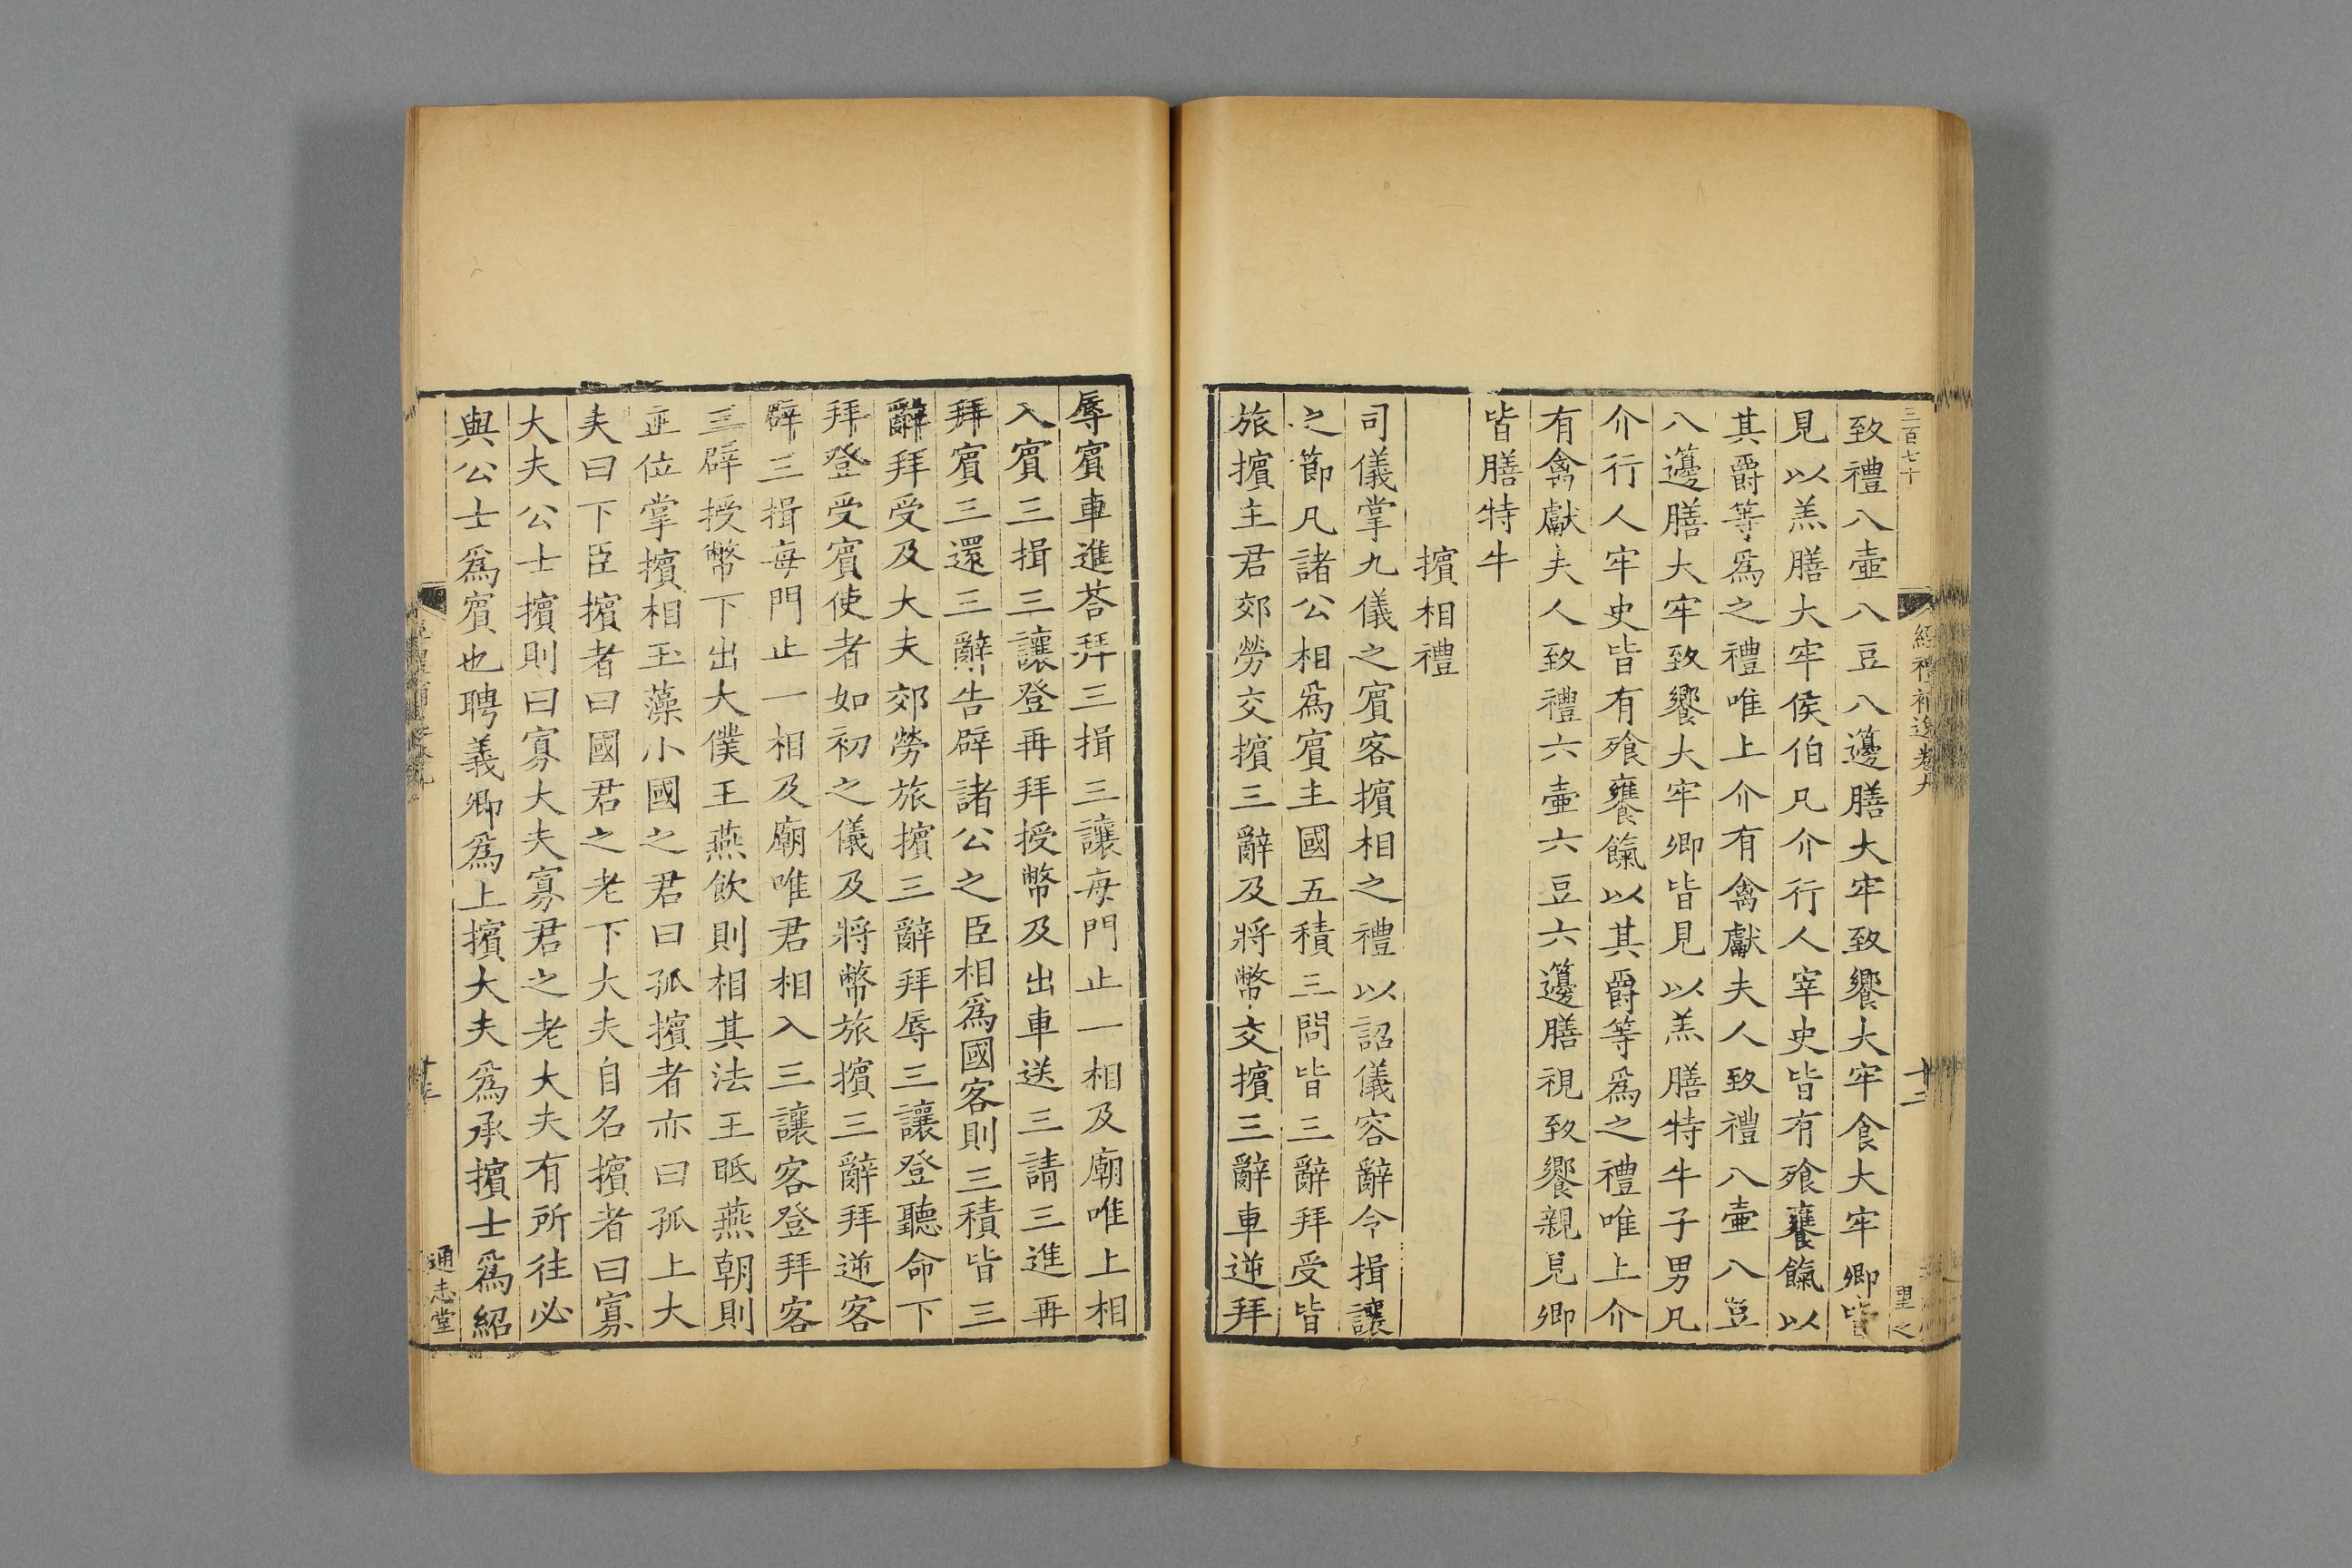 三百七十
經禮補逸卷九
十二
里之
致禮八壷八豆八籩膳大牢致饗大牢食大牢卿皆
見以羔膳大牢侯伯凡介行人宰史皆有飱饔餼以
其爵等爲之禮唯上介有禽獻夫人致禮八壷八豆
八籩膳大牢致饗大牢卿皆見以羔膳特牛子男凡
介行人牢史皆有飱饔餼以其爵等爲之禮唯上介
有禽獻夫人致禮六壷六豆六籩膳視致饗親見卿
皆膳特牛
擯相禮
司儀掌九儀之賓客擯相之禮以詔儀容辭令揖讓
之節凡諸公相爲賓主國五積三問皆三辭拜受皆
旅擯主君郊勞交擯三辭及將幣交擯三辭車逆拜
辱賓車進荅拜三揖三讓毎門止一相及廟唯上相
入賓三揖三讓登再拜授幣及出車送三請三進再
拜賓三還三辭告辟諸公之臣相爲國客則三積皆三
辭拜受及大夫郊勞旅擯三辭拜辱三讓登聽命下
拜登受賓使者如初之儀及將幣旅擯三辭拜逆客
辟三揖毎門止一相及廟唯君相入三讓客登拜客
三辟授幣下出大僕王燕飲則相其法王眡燕朝則
正位掌擯相玉藻小國之君曰孤擯者亦曰孤上大
夫曰下臣擯者曰國君之老下大夫自名擯者曰寡
大夫公士擯則曰寡大夫寡君之老大夫有所往必
與公士爲賓也聘義卿爲上擯大夫爲承擯士爲紹
通志堂